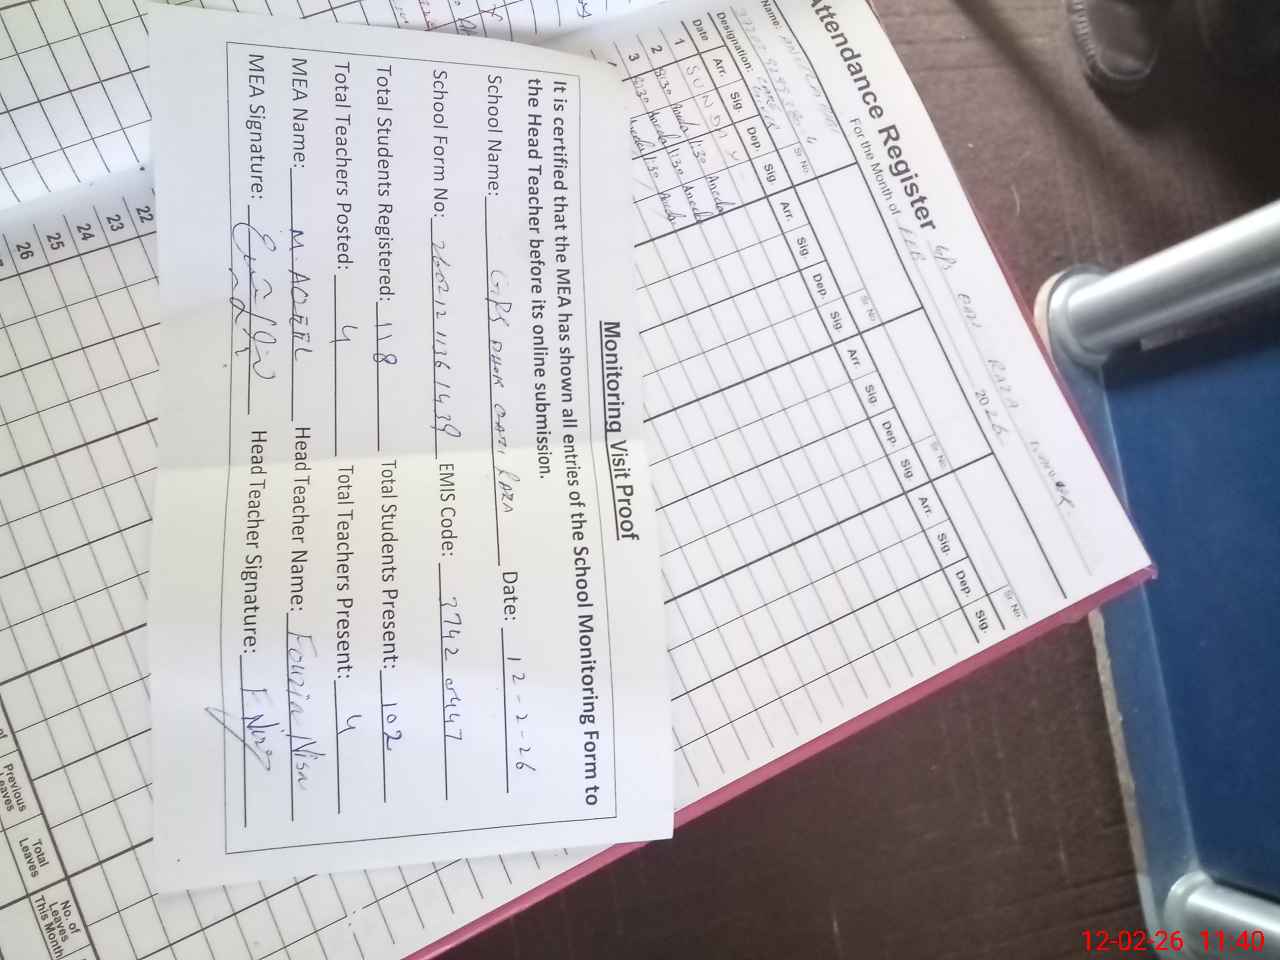 Monitoring Visit Proof
It is certified that the MEA has shown all entries of the School Monitoring Form to
the Head Teacher before its online submission.
School Name: GPS DHOK QAZI RAZA Date: 12-2-26
School Form No: EMIS Code: 37420447
Total Students Registered: 118 Total Students Present: 102
Total Teachers Posted: 4 Total Teachers Present: 4
MEA Name: M. AQEEL Head Teacher Name: Fouzia Nisa
MEA Signature: Head Teacher Signature:
Attendance Register
For the Month of FEB 2026
Name:
Designation:
Sr. No Sr. No Sr. No Sr. No
Date Arr. Sig. Dep. Sig. Arr. Sig. Dep. Sig. Arr. Sig. Dep. Sig. Arr. Sig. Dep. Sig.
1 SUNDAY
2 8:30 1:30
3 8:30 1:30
22
23
24
25
26
Previous Leaves
Total Leaves
No. of Leaves This Month
12-02-26 11:40